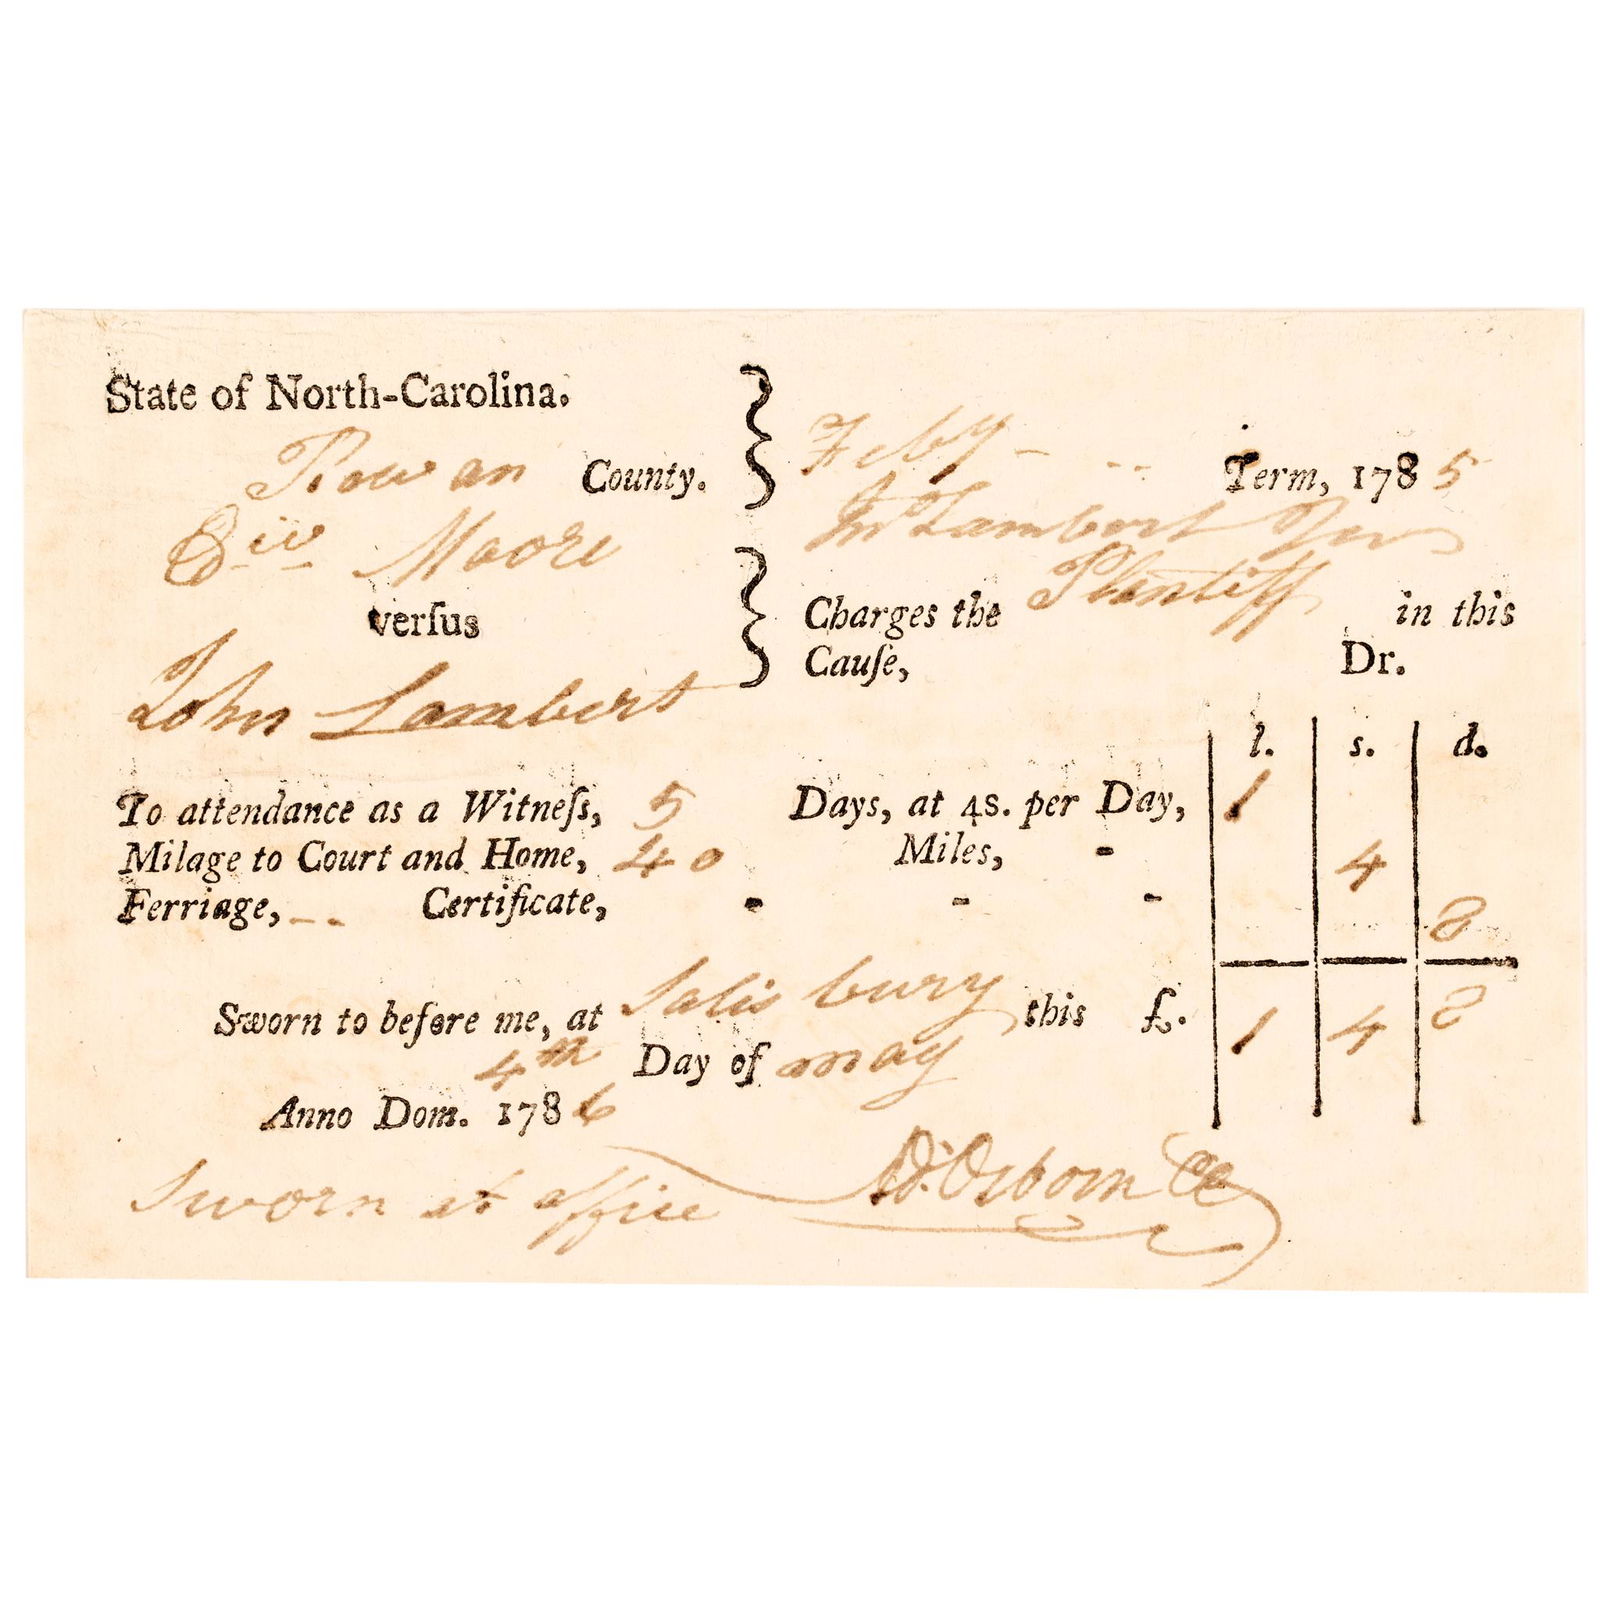 State of North-Carolina.
Rowan County.
Moore
verſus
John Lambert
Feby - Term, 1785
Jnº Lambert Junr
Charges the Plantiff in this
Cauſe, Dr.
l. s. d.
To attendance as a Witneſs, 5 Days, at 4s. per Day, 1
Milage to Court and Home, 40 Miles, - 4
Ferriage, -- Certificate, - - - 8
Sworn to before me, at Salisbury this £. 1 4 8
4th Day of may
Anno Dom. 1786
Sworn at office Ad. Osborn CC